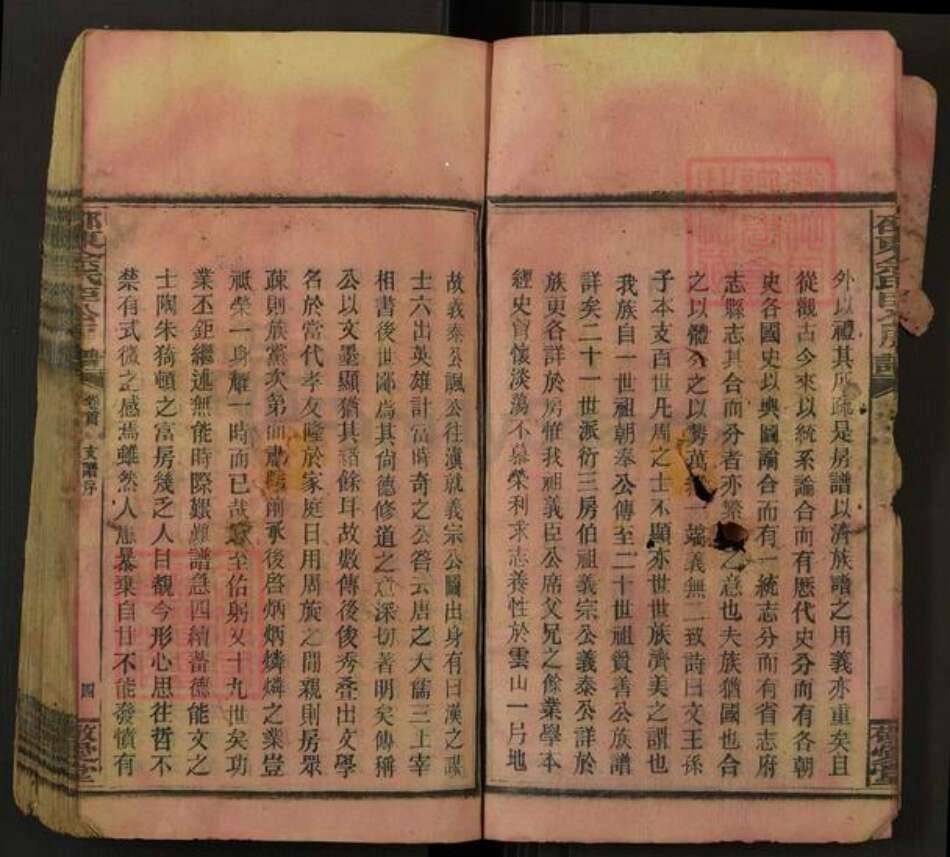 外以禮其所疏是房譜以濟族譜之用義亦重矣且
從觀古今來以統系論合而有歷代史分而有各朝
史各國史以輿圖論合而有一統志分而有省志府
志縣志其合而分者亦繁之意也夫族猶國也合
之以體分之以勢萬一端義無二致詩曰文王孫
子本支百世凡周之士不顯亦世世族濟美之謂也
我族自一世祖朝奉公傳至二十世祖質善公族譜
詳矣二十一世派衍三房伯祖義宗公義泰公詳於
族更各詳於房惟我祖義臣公席父兄之餘業學本
經史曾懷淡蕩不慕榮利求志養性於雲山一片地
故義泰公諷公往滇就義宗公圖出身有曰漢之謀
士六出英雄計富時奇之公答云唐之大儒三上宰
相書後世鄙焉其尚德修道之意深切著明矣傳稱
公以文墨顯猶其緒餘耳故數傳後俊秀疊出文學
名於當代孝友隆於家庭日用周旋之間親則房眾
疎則族黨次第而肅雍前承後啓炳炳燐燐之業豈
祇榮一身耀一時而已哉至佑躬又十九世矣功
業丕鉅繼述無能時際艱難譜急四續蓄德能文之
士陶朱猗頓之富房幾乏人目覩今形心思往哲不
禁有式微之感焉雖然人患暴棄自甘不能發憤有
卷首 支譜序
四
敦睦堂